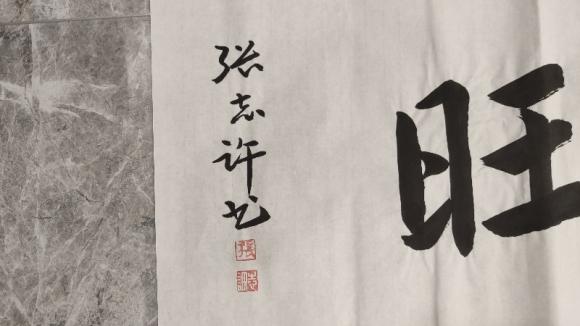 旺
张志许书